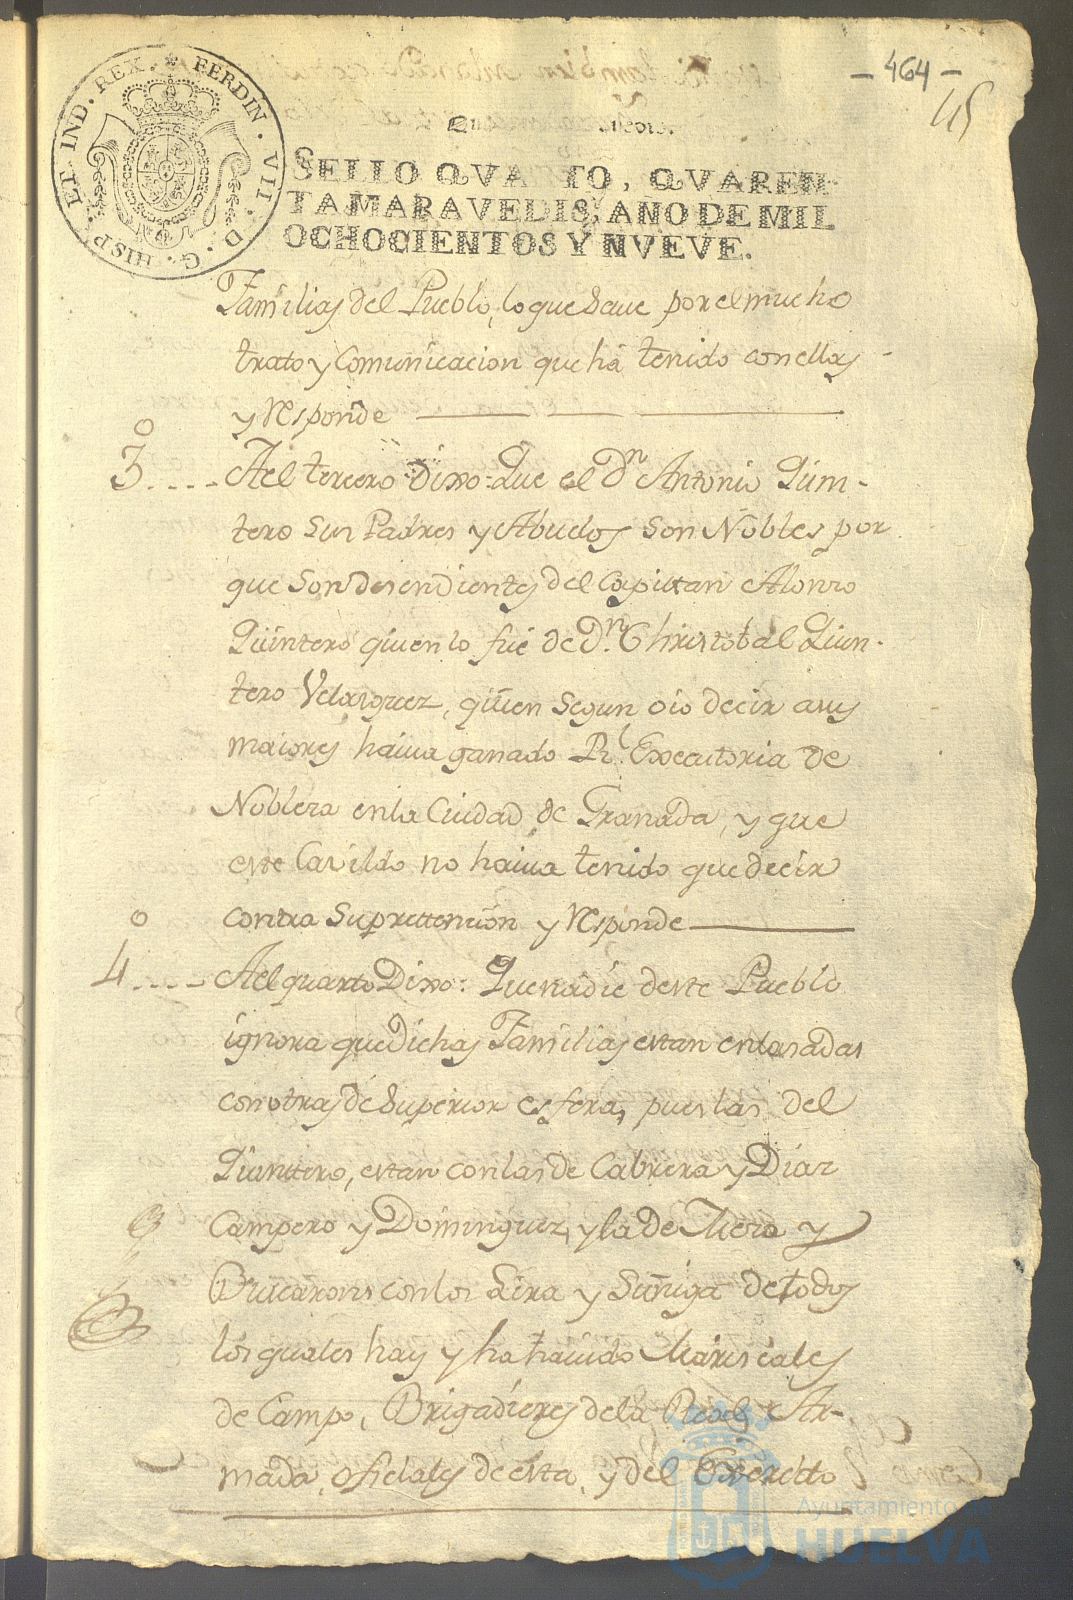 - 464 -
45
SELLO QVARTO, QVAREN-
TA MARAVEDIS, AÑO DE MIL
OCHOCIENTOS Y NVEVE.
FERDIN. VII. D. G. HISP. ET IND. REX.
Familias del Pueblo, lo que save por el mucho
trato y Comunicacion que há tenido con ellas
y responde
3º.... A el tercero Dixo: Que el Dn Antonio Quin-
tero sus Padres y Abuelos son Nobles por
que son desendientes del Capittan Alonso
Quintero quien lo fue de Dn. Christobal Quin-
tero Velasquez, quien segun oio decir a sus
maiores haiva ganado Rl. Executoria de
Nobleza en la Ciudad de Granada, y que
este Cavildo no haiva tenido que decir
contra su prettención y responde
4º.... A el quarto Dixo: Que nadie deste Pueblo
ignora que Dichas Familias estan enlasadas
con otras de Superior esfera, pues las del
Quinttero, estan con las de Cabrera y Diaz
Campero y Dominguez, y la de Mora y
con los Lira y Suñiga de todos
los quales hay y ha havido Mariscales
de Campo, Brigadieres de la Real Ar-
mada, oficiales de esta, y del Exercitto
Ayuntamiento de
HUELVA